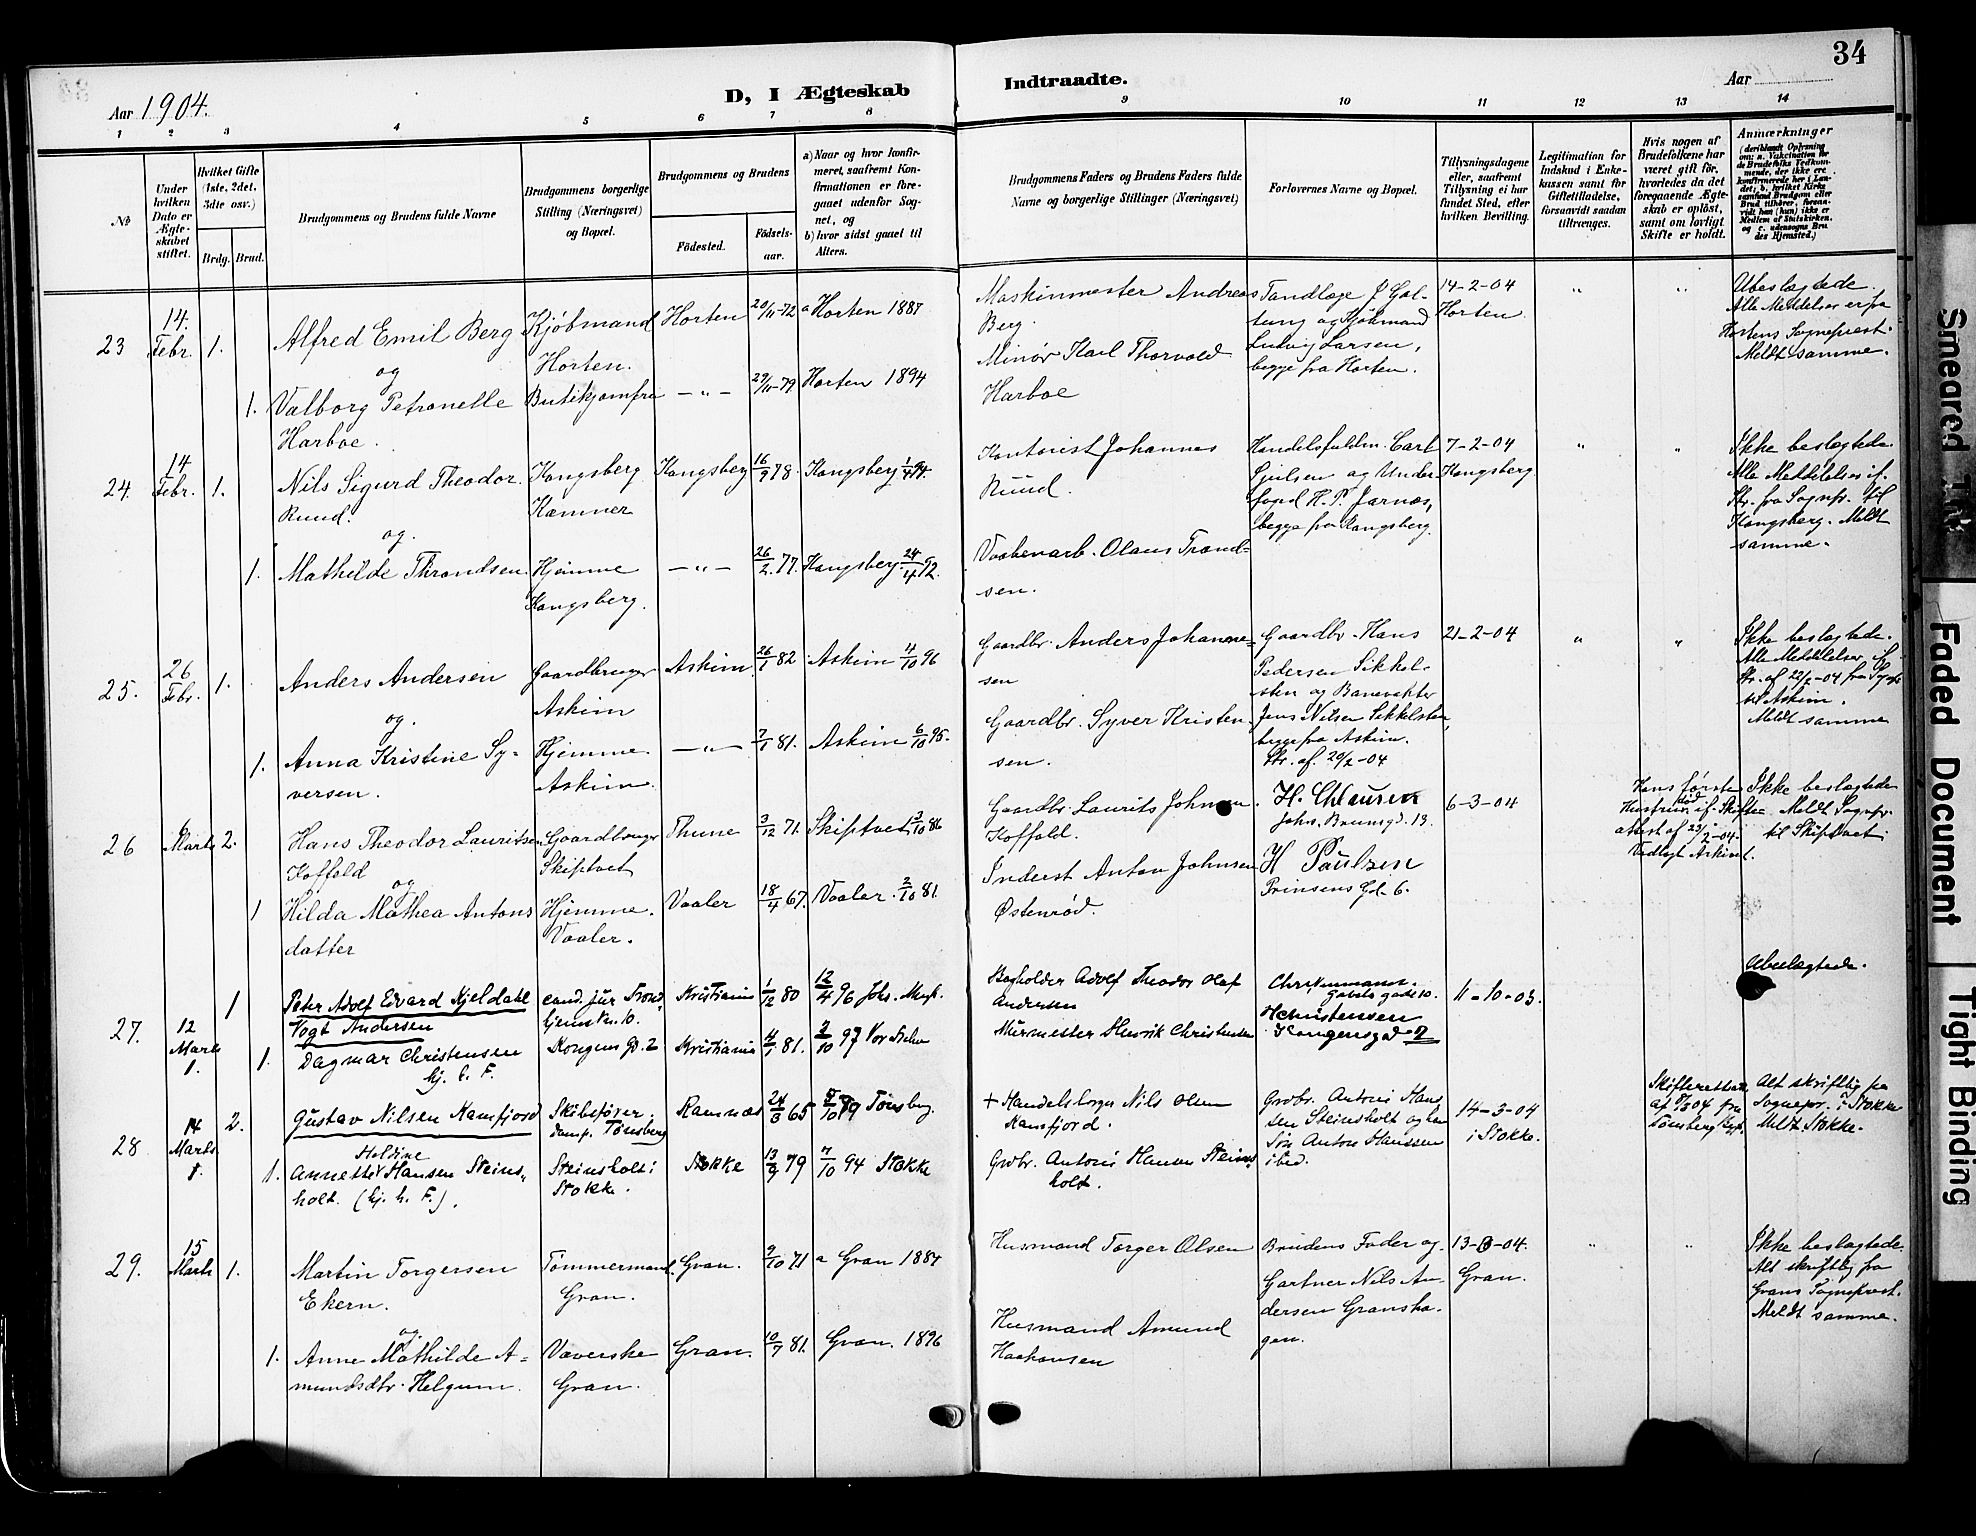 34
Aar 1904.
D, I Ægteskab Indtraadte.
Aar
1 2 3 4 5 6 7 8 9 10 11 12 13 14
№
Under hvilken Dato er Ægteskabet stiftet.
Hvilket Gifte (1ste, 2det, 3dte osv.)
Brdg. Brud.
Brudgommens og Brudens fulde Navne
Brudgommens borgerlige Stilling (Næringsvei) og Bopæl.
Brudgommens og Brudens
Födested.
Födselsaar.
a) Naar og hvor konfirmeret, saafremt Konfirmationen er foregaaet udenfor Sognet, og
b) hvor sidst gaaet til Alters.
Brudgommens Faders og Brudens Faders fulde Navne og borgerlige Stillinger (Næringsvei)
Forlovernes Navne og Bopæl.
Tillysningsdagene eller, saafremt Tillysning ei har fundet Sted, efter hvilken Bevilling.
Legitimation for Indskud i Enkekassen samt for Giftetilladelse, forsaavidt saadan tiltrænges.
Hvis nogen af Brudefolkene har været gift för, hvorledes da det foregaaende Ægteskab er oplöst, samt om lovligt Skifte er holdt.
Anmærkninger
23
14. Febr.
1.
Alfred Emil Berg
Kjöbmand
Horten.
Horten
20/11-72
a Horten 1887
Maskinmester Andreas
Berg.
Tandlæge J Gal-
tung og Kjöbmand
Ludvig Larsen,
begge fra Horten.
14-2-04
Horten
Ubeslagtede.
Alle Meddelser er fra
Hortens Sogneprest.
Meldt samme.
og
1.
Valborg Petronelle
Harboe.
Butikjomfru
— " —
29/11-79
Horten 1894
Minör Karl Thorvald
Harboe
24.
14 Febr.
1.
Nils Sigurd Theodor
Ruud.
Kongsberg
Kemner
Kongsberg
16/9 78.
Kongsberg 1/4 94.
Kontorist Johannes
Ruud.
Handelsfuldm. Carl
Gjulsen og Under-
foged H. P. Jarnæs,
begge fra Kongsberg.
7-2-04
Kongsberg
Ikke beslagtede.
Alle Meddelelser if.
Skr. fra Sognepr. til
Kongsberg. Meldt
samme.
og.
1.
Mathilde Throndsen
Hjemme
Kongsberg.
— " —
26/2 77.
Kongsberg 24/4 92.
Vaabenarb. Olaus Trond-
sen.
25.
26 Febr.
1.
Anders Andersen
Gaardbruger
Askim
Askim
26/1 82
Askim 4/10 96
Gaardbr. Anders Johanne-
sen
Gaardbr. Hans
Pedersen Sikkel-
sten og Banevakter
Jens Nilsen Sikkelsten,
begge fra Askim.
Skr. af. 20/2-04
21-2-04
Ikke beslagtede.
Alle Meddelelser if
Skr. af 22/2-04 fra Sognpr
til Askim.
Meldt samme
og.
1.
Anna Kristine Sy-
versen.
Hjemme
Askim.
— " —
7/1 81.
Askim 6/10 95.
Gaardbr. Syver Kristen-
sen.
26
Marts
2.
Hans Theodor Lauritsen
Koffold
Gaardbruger
Skiptvet
Thune
3/12 71.
Skiptvet 3/10 86
Gaardbr. Laurits Johnsen
Koffold.
H. Chlausen
Johs. Brunsgd. 13.
6-3-04
Hans første
Hustru död if. Skifte
attest af 23/2-04.
Vedlagt Arkivet.
Ikke beslagtede
Meldt Sognepr.
til Skiptvet.
og
1
Hilda Mathea Antons
datter
Hjemme.
Vaaler.
Vaaler
18/4 67.
Vaaler. 2/10 81.
Inderst Anton Johnsen
Østenröd.
H Paulsen
Prinsens Gd. 6.
27.
12 Marts
1
Peter Adolf Edvard Kjeldahl
Vogt Andersen
cand. jur Trond-
hjemsv. 10.
Kristiania
1/12 80
12/4 96 Johs. Mgh.
Bogholder Adolf Theodor Olaf
Andersen
11-10-03.
Ubeslægtede.
1.
Dagmar Christensen
hj. h. F.
Kongens Gd. 2
Kristiania
4/1 81.
3/10 97 Vor Frelser
Murmester Henrik Christensen
HChristensen
Kongensgd 2
28
14 Marts
2.
Gustav Nilsen Ramfjord
Skibsfører.
damp. Tönsberg
Ramnæs
24/3 65
5/10 79 Tönsberg.
+ Handelsborger Nils Olsen
Ramfjord.
Grdbr. Antoni Han
sen Steinsholt og han
Sön Anton Hanssen
ibid.
14-3-04
i Stokke.
Skifterettsatt.
af 8/3 04 fra
Tönsberg Byf.
Alt skriftlig fra
Sognepr. i Stokke
Meldt Stokke.
1.
Holdine
Annette Hansen Steins-
holt. (hj. h. F.).
Steinsholt i
Stokke.
Stokke
13/9 79
7/10 94 Stokke
Grdbr. Antoni Hansen Steins-
holt.
29.
15 Marts
1.
Martin Torgersen
Ekern.
Tömmermand.
Gran.
Gran.
9/10 71
a Gran 1887
Husmand Torger Olsen
Brudens Fader og
Gartner Nils An-
dersen Gransha-
gen.
13-3-04.
Gran.
Ikke beslagtede.
Alt skriftlig fra
Grans Sogneprest.
Meldt samme.
og
1.
Anne Mathilde A-
mundsdtr. Helgum.
Væverske
Gran.
Gran.
10/7 81.
Gran. 1896
Husmand Amund
Haakonsen
Smeared Ink
Faded Document
Tight Binding